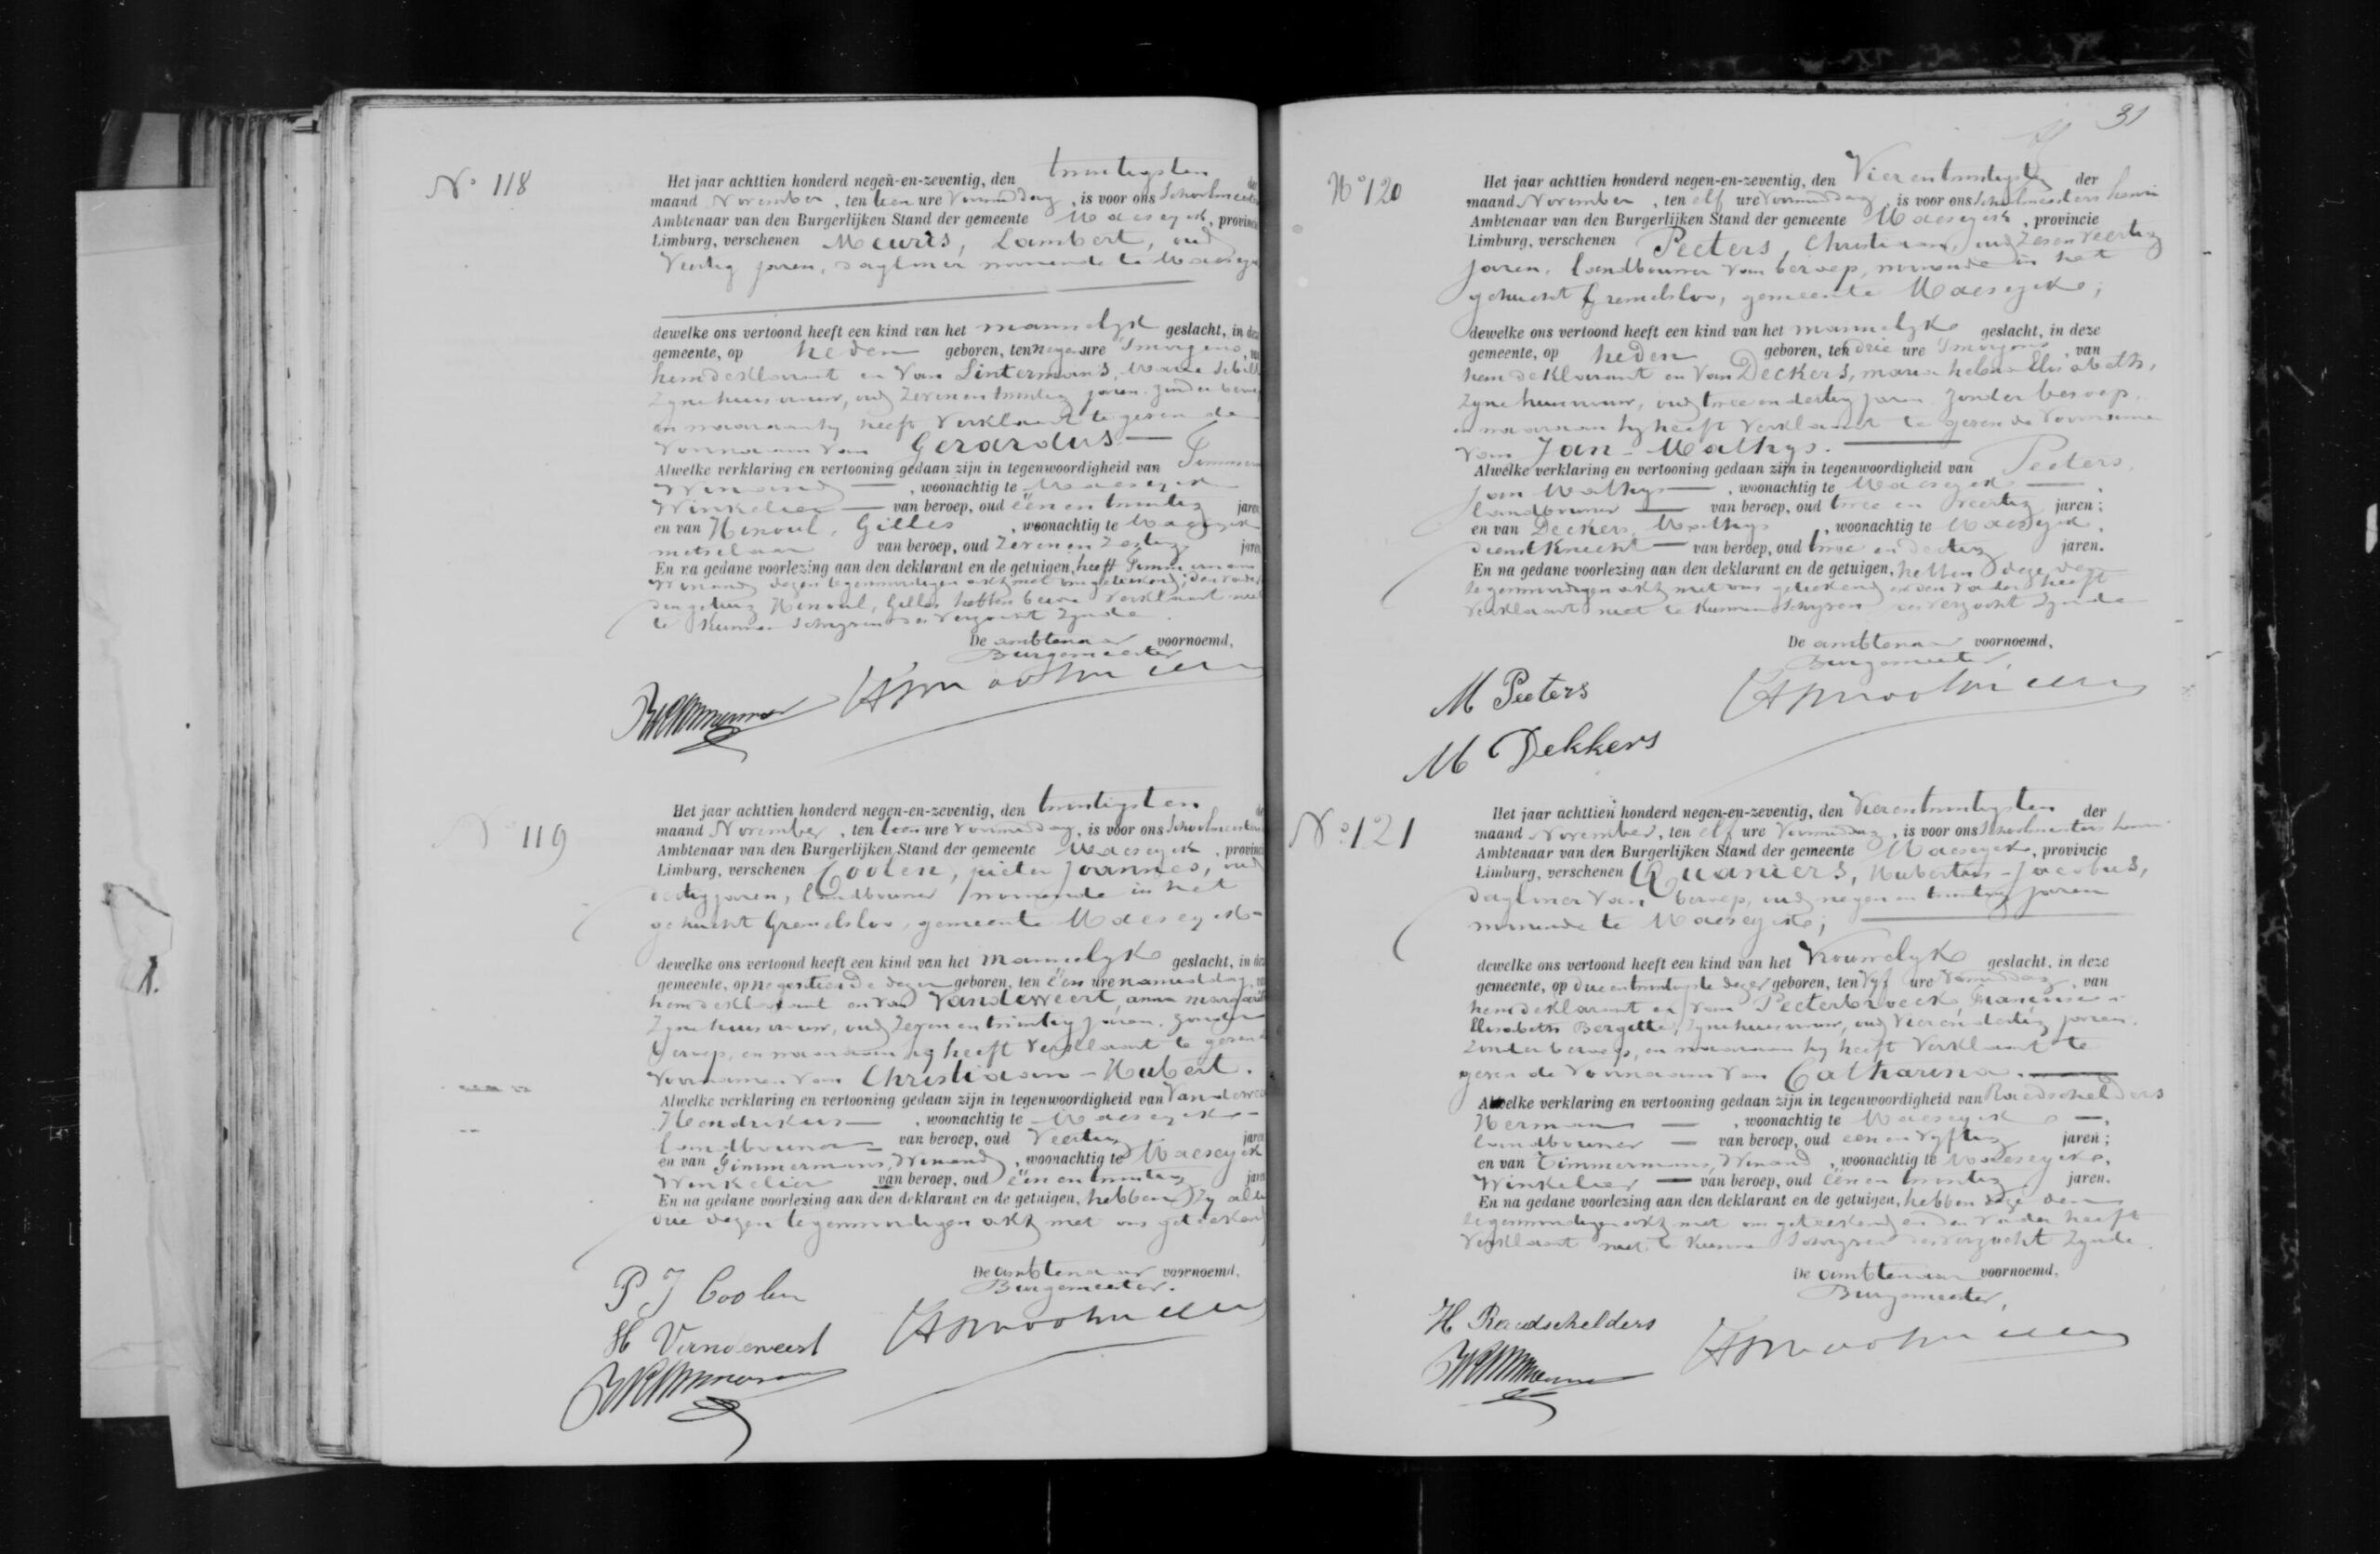 N° 118
Het jaar achttien honderd negen-en-zeventig, den twintigsten
maand November, ten tien ure Voormiddag, is voor ons Schoolmeesters
Ambtenaar van den Burgerlijken Stand der gemeente Maeseyck, provincie
Limburg, verschenen Meuris, Lambert, oud
Veertig jaren, dagloner wonende te Maeseyck
dewelke ons vertoond heeft een kind van het mannelyk geslacht, in deze
gemeente, op heden geboren, ten negen ure 's morgens, van
hem deklarant en van Lintermans, Maria
Zyne huisvrouw, oud Zevenentwintig jaren, zonder beroep
en waaraan hy heeft Verklaard te geven de
Voornaam van Gerardus —
Alwelke verklaring en vertooning gedaan zijn in tegenwoordigheid van
Winand —, woonachtig te Maeseyck
Winkelier — van beroep, oud één en twintig jaren
en van Henoul, Gilles, woonachtig te Maeseyck
metselaar van beroep, oud Zeven en Zestig jaren
En na gedane voorlezing aan den deklarant en de getuigen, heeft Timmermans
Winand dezen tegenwoordigen akt met ons geteekend; den Vader
den getuig Henoul, Gilles hebben Verklaard niet
te kunnen Schryven des Verzocht Zynde
De ambtenaar voornoemd,
Burgemeester
N° 119
Het jaar achttien honderd negen-en-zeventig, den twintigsten
maand November, ten tien ure voormiddag, is voor ons Schoolmeesters
Ambtenaar van den Burgerlijken Stand der gemeente Maeseyck, provincie
Limburg, verschenen Coolen, pieter Joannes, oud
dertig jaren, Landbouwer wonende in het
gehucht Gremelsloo, gemeente Maeseyck —
dewelke ons vertoond heeft een kind van het mannelyk geslacht, in deze
gemeente, op negentiende dezer geboren, ten één ure namiddag, van
hem deklarant en van Vanderweert, anna margarita
Zyne huisvrouw, oud Zeven en twintig jaren, zonder
beroep, en waaraan hy heeft Verklaard te geven de
Voornamen van Christiaan-Hubert.
Alwelke verklaring en vertooning gedaan zijn in tegenwoordigheid van Vanderweert
Hendrikus —, woonachtig te Maeseyck —
Landbouwer — van beroep, oud Veertig jaren
en van Timmermans, Winand, woonachtig te Maeseyck
Winkelier van beroep, oud één en twintig jaren
En na gedane voorlezing aan den deklarant en de getuigen, hebben Zy alle
drie dezen tegenwoordigen akt met ons geteekend
De ambtenaar voornoemd,
Burgemeester.
P J Coolen
H Vanderweert
31
N° 120
Het jaar achttien honderd negen-en-zeventig, den Vierentwintigsten der
maand November, ten elf ure voormiddag, is voor ons Schoolmeesters henri
Ambtenaar van den Burgerlijken Stand der gemeente Maeseyck, provincie
Limburg, verschenen Peeters, Christiaan, oud Zesenveertig
jaren, Landbouwer van beroep, wonende in het
gehucht Gremelsloo, gemeente Maeseyck;
dewelke ons vertoond heeft een kind van het mannelyk geslacht, in deze
gemeente, op heden geboren, ten drie ure 's morgens, van
hem deklarant en van Deckers, maria helena Elisabeth,
Zyne huisvrouw, oud twee en dertig jaren, Zonder beroep,
en waaraan hy heeft Verklaard te geven de Voornamen
van Jan-Mathys. —
Alwelke verklaring en vertooning gedaan zijn in tegenwoordigheid van Peeters,
Jan Mathys —, woonachtig te Maeseyck —,
Landbouwer — van beroep, oud twee en Veertig jaren;
en van Deckers, Mathys, woonachtig te Maeseyck,
dienstknecht — van beroep, oud twee en dertig jaren.
En na gedane voorlezing aan den deklarant en de getuigen, hebben deze den
tegenwoordigen akt met ons geteekend en den Vader heeft
Verklaard niet te kunnen Schryven des Verzocht Zynde
De ambtenaar voornoemd,
Burgemeester,
M Peeters
M Dekkers
N° 121
Het jaar achttien honderd negen-en-zeventig, den Vierentwintigsten der
maand November, ten elf ure Voormiddag, is voor ons Schoolmeesters henri
Ambtenaar van den Burgerlijken Stand der gemeente Maeseyck, provincie
Limburg, verschenen Quaniers, Hubertus-Jacobus,
dagloner Van beroep, oud negen en twintig jaren
wonende te Maeseyck;
dewelke ons vertoond heeft een kind van het Vrouwelyk geslacht, in deze
gemeente, op drieentwintigste dezer geboren, ten Vyf ure Namiddag, van
hem deklarant en Van Peeterbroeck,
Elisabeth Bergette, Zyne huisvrouw, oud Vierendertig jaren,
Zonder beroep, en waaraan hy heeft Verklaard te
geven de Voornaam Van Catharina. —
Alwelke verklaring en vertooning gedaan zijn in tegenwoordigheid van Raedschelders
Herman —, woonachtig te Maeseyck —,
Landbouwer — van beroep, oud een en Vyftig jaren;
en van Timmermans, Winand, woonachtig te Maeseyck,
Winkelier — van beroep, oud één en twintig jaren.
En na gedane voorlezing aan den deklarant en de getuigen, hebben deze den
tegenwoordigen akt met ons geteekend en den Vader heeft
Verklaard niet te kunnen Schryven des verzocht Zynde.
De ambtenaar voornoemd,
Burgemeester,
H Raedschelders
1.